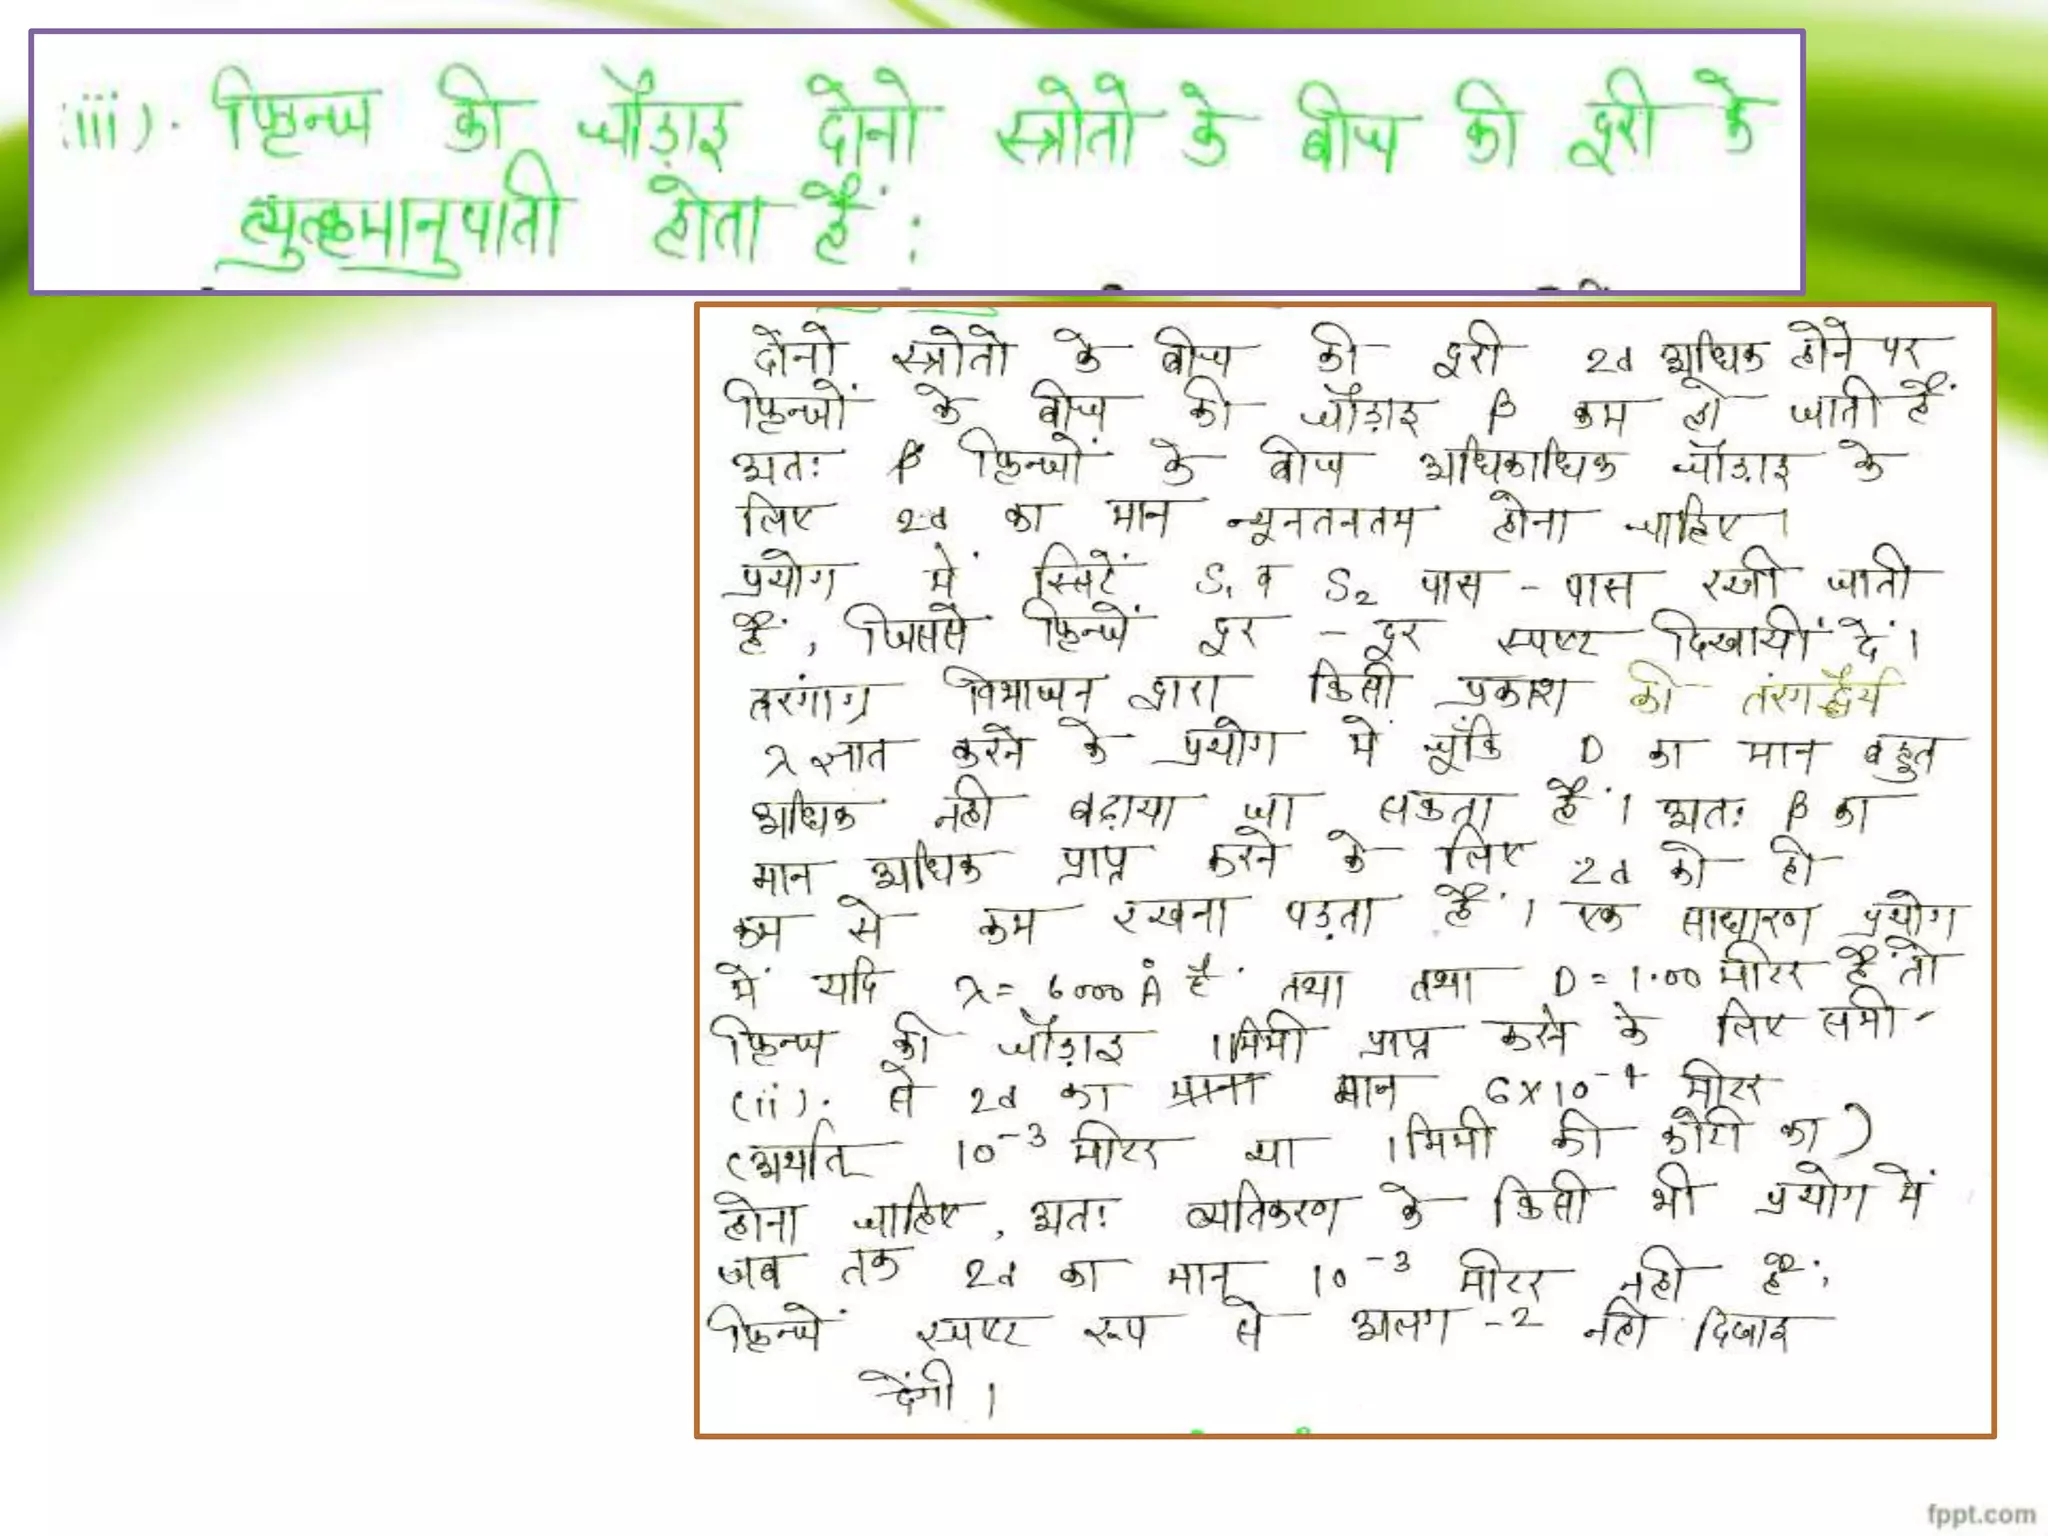 (iii). फ्रिन्ज की चौड़ाइ दोनो स्त्रोतो के बीच की दूरी के
व्युत्क्रमानुपाती होता हैं:
दोनो स्त्रोतो के बीच की दूरी 2d अधिक होने पर
फ्रिन्जों के बीच की चौड़ाइ β कम हो जाती हैं
अतः β फ्रिन्जों के बीच अधिकाधिक चौड़ाइ के
लिए 2d का मान न्यूनतनतम होना चाहिए।
प्रयोग में स्लिटें S₁ व S₂ पास - पास रखी जाती
हैं, जिससे फ्रिन्जें दूर - दूर स्पष्ट दिखायीं दें।
तरंगाग्र विभाजन द्वारा किसी प्रकाश की तंरगद्धैर्य
λ ज्ञात करने के प्रयोग में चूँकि D का मान बहुत
अधिक नही बढ़ाया जा सकता हैं। अतः β का
मान अधिक प्राप्त करने के लिए 2d को ही
कम से कम रखना पड़ता हैं। एक साधारण प्रयोग
में यदि λ = 6000 Å है तथा तथा D = 1.00 मीटर हैं तो
फ्रिन्ज की चौड़ाइ 1मिमी प्राप्त करने के लिए समी-
(ii). से 2d का मान 6×10⁻⁴ मीटर
(अर्थात् 10⁻³ मीटर या 1मिमी की कोटी का)
होना चाहिए, अतः व्यतिकरण के किसी भी प्रयोग में
जब तक 2d का मान 10⁻³ मीटर नही है,
फ्रिन्जें स्पष्ट रूप से अलग -2 नही दिखाइ
देंगी।
fppt.com